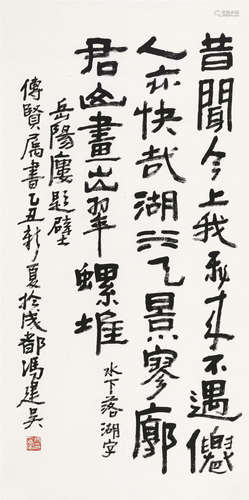 昔聞今上我秋来不遇僊
人亦快哉湖水天景寥廓
君山畫出翠螺堆
水下落湖字
岳陽廔題壁
傅賢属書乙丑新夏於成都馮建吴